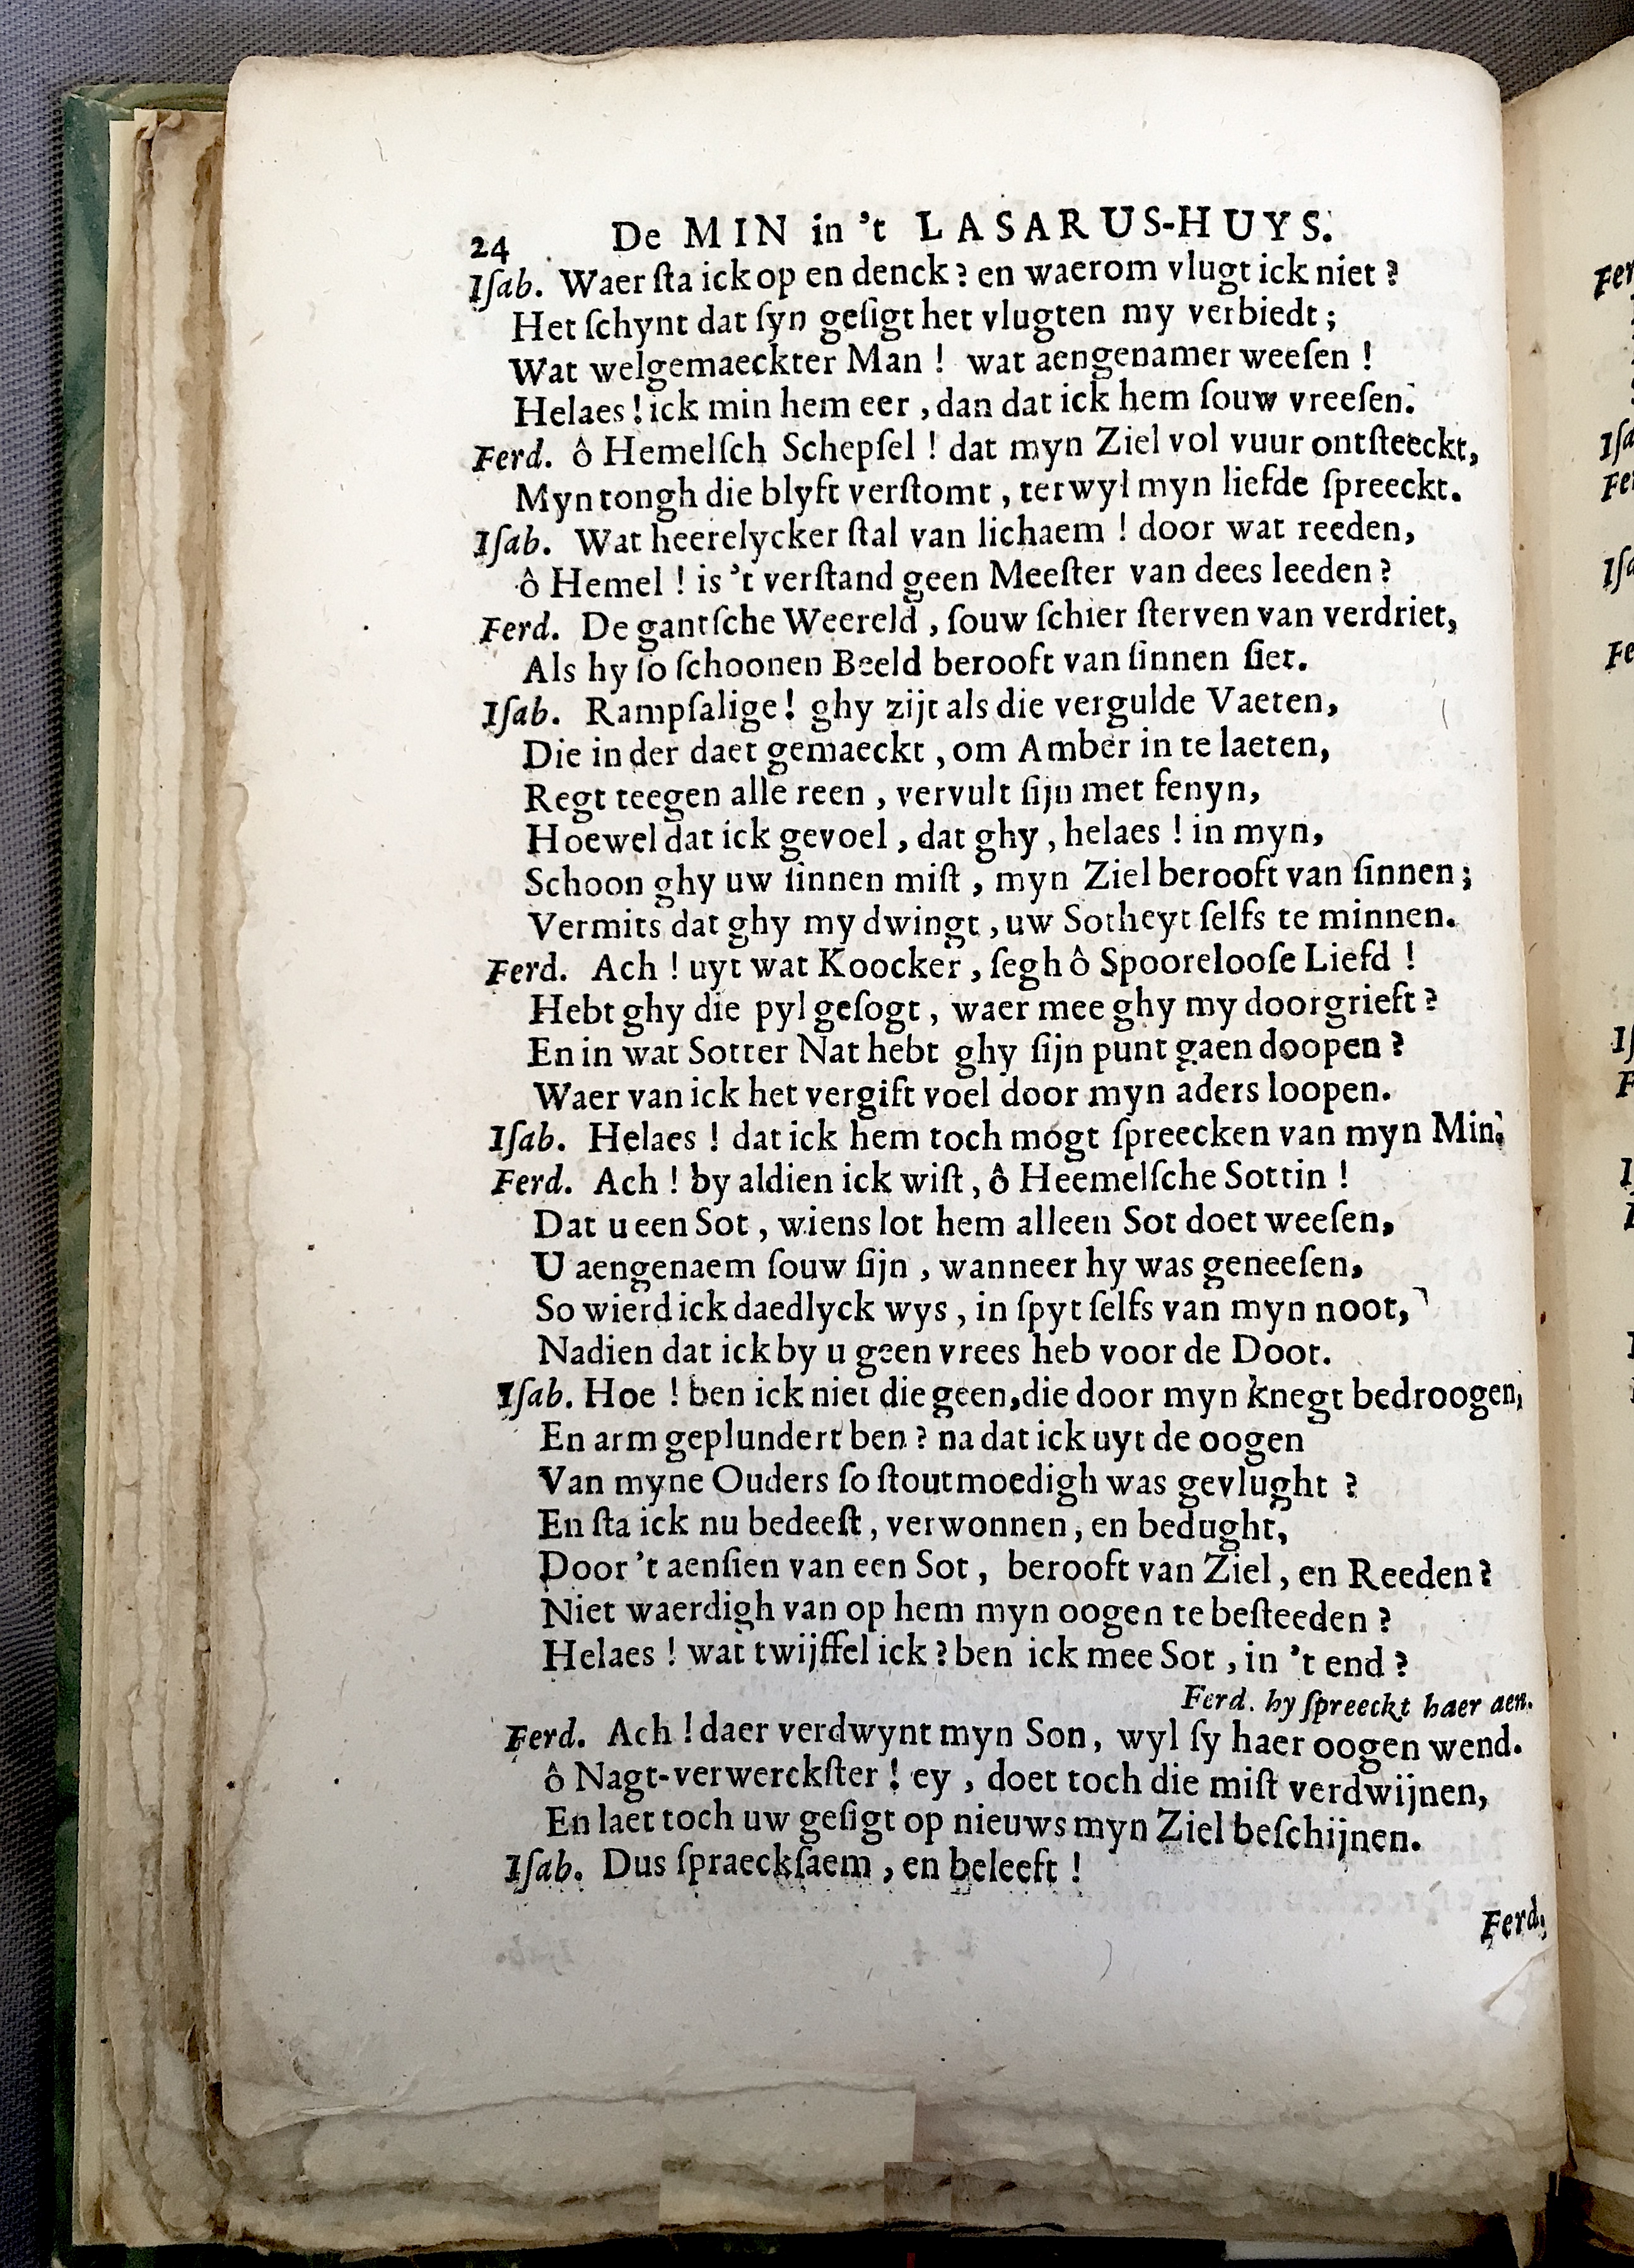 24 De MIN in 't LASARUS-HUYS.
Iſab. Waer ſta ick op en denck? en waerom vlugt ick niet?
Het ſchynt dat ſyn geſigt het vlugten my verbiedt;
Wat welgemaeckter Man! wat aengenamer weeſen!
Helaes! ick min hem eer, dan dat ick hem ſouw vreeſen.
Ferd. ô Hemelſch Schepſel! dat myn Ziel vol vuur ontſteeckt,
Myn tongh die blyft verſtomt, terwyl myn liefde ſpreeckt.
Iſab. Wat heerelycker ſtal van lichaem! door wat reeden,
ô Hemel! is 't verſtand geen Meeſter van dees leeden?
Ferd. De gantſche Weereld, ſouw ſchier ſterven van verdriet,
Als hy ſo ſchoonen Beeld berooft van ſinnen ſiet.
Iſab. Rampſalige! ghy zijt als die vergulde Vaeten,
Die in der daet gemaeckt, om Amber in te laeten,
Regt teegen alle reen, vervult ſijn met fenyn,
Hoewel dat ick gevoel, dat ghy, helaes! in myn,
Schoon ghy uw ſinnen miſt, myn Ziel berooft van ſinnen;
Vermits dat ghy my dwingt, uw Sotheyt ſelfs te minnen.
Ferd. Ach! uyt wat Koocker, ſegh ô Spooreloоſe Liefd!
Hebt ghy die pyl geſogt, waer mee ghy my doorgrieft?
En in wat Sotter Nat hebt ghy ſijn punt gaen doopen?
Waer van ick het vergift voel door myn aders loopen.
Iſab. Helaes! dat ick hem toch mogt ſpreecken van myn Min.
Ferd. Ach! by aldien ick wiſt, ô Heemelſche Sottin!
Dat u een Sot, wiens lot hem alleen Sot doet weeſen,
U aengenaem ſouw ſijn, wanneer hy was geneeſen,
So wierd ick daedlyck wys, in ſpyt ſelfs van myn noot,
Nadien dat ick by u geen vrees heb voor de Doot.
Iſab. Hoe! ben ick niet die geen, die door myn knegt bedroogen,
En arm geplundert ben? na dat ick uyt de oogen
Van myne Ouders ſo ſtoutmoedigh was gevlught?
En ſta ick nu bedeeſt, verwonnen, en bedught,
Door 't aenſien van een Sot, berooft van Ziel, en Reeden?
Niet waerdigh van op hem myn oogen te beſteeden?
Helaes! wat twijffel ick? ben ick mee Sot, in 't end?
Ferd. hy ſpreeckt haer aen.
Ferd. Ach! daer verdwynt myn Son, wyl ſy haer oogen wend.
ô Nagt-verwerckſter! ey, doet toch die miſt verdwijnen,
En laet toch uw geſigt op nieuws myn Ziel beſchijnen.
Iſab. Dus ſpraeckſaem, en beleeft!
Ferd.